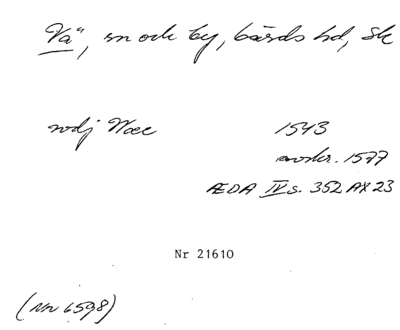 Vä", sn och by, Gärds hd, Sk
wdj Wæ 1543
avskr. 1577
ÆDA IV s. 352 AX 23
Nr 21610
(NN 6598)